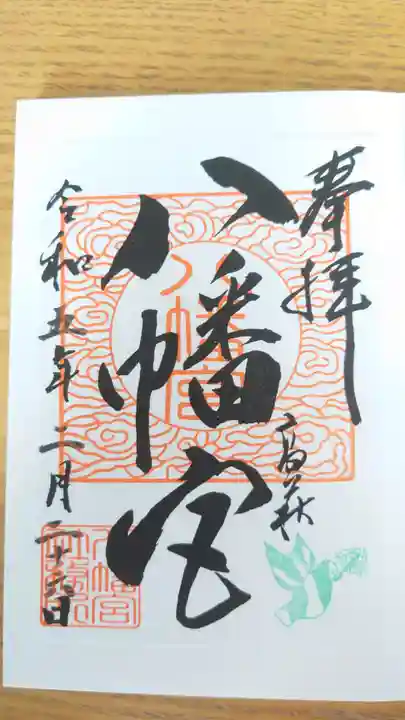 奉拝
高萩
八幡宮
八幡宮
令和五年二月二十六日